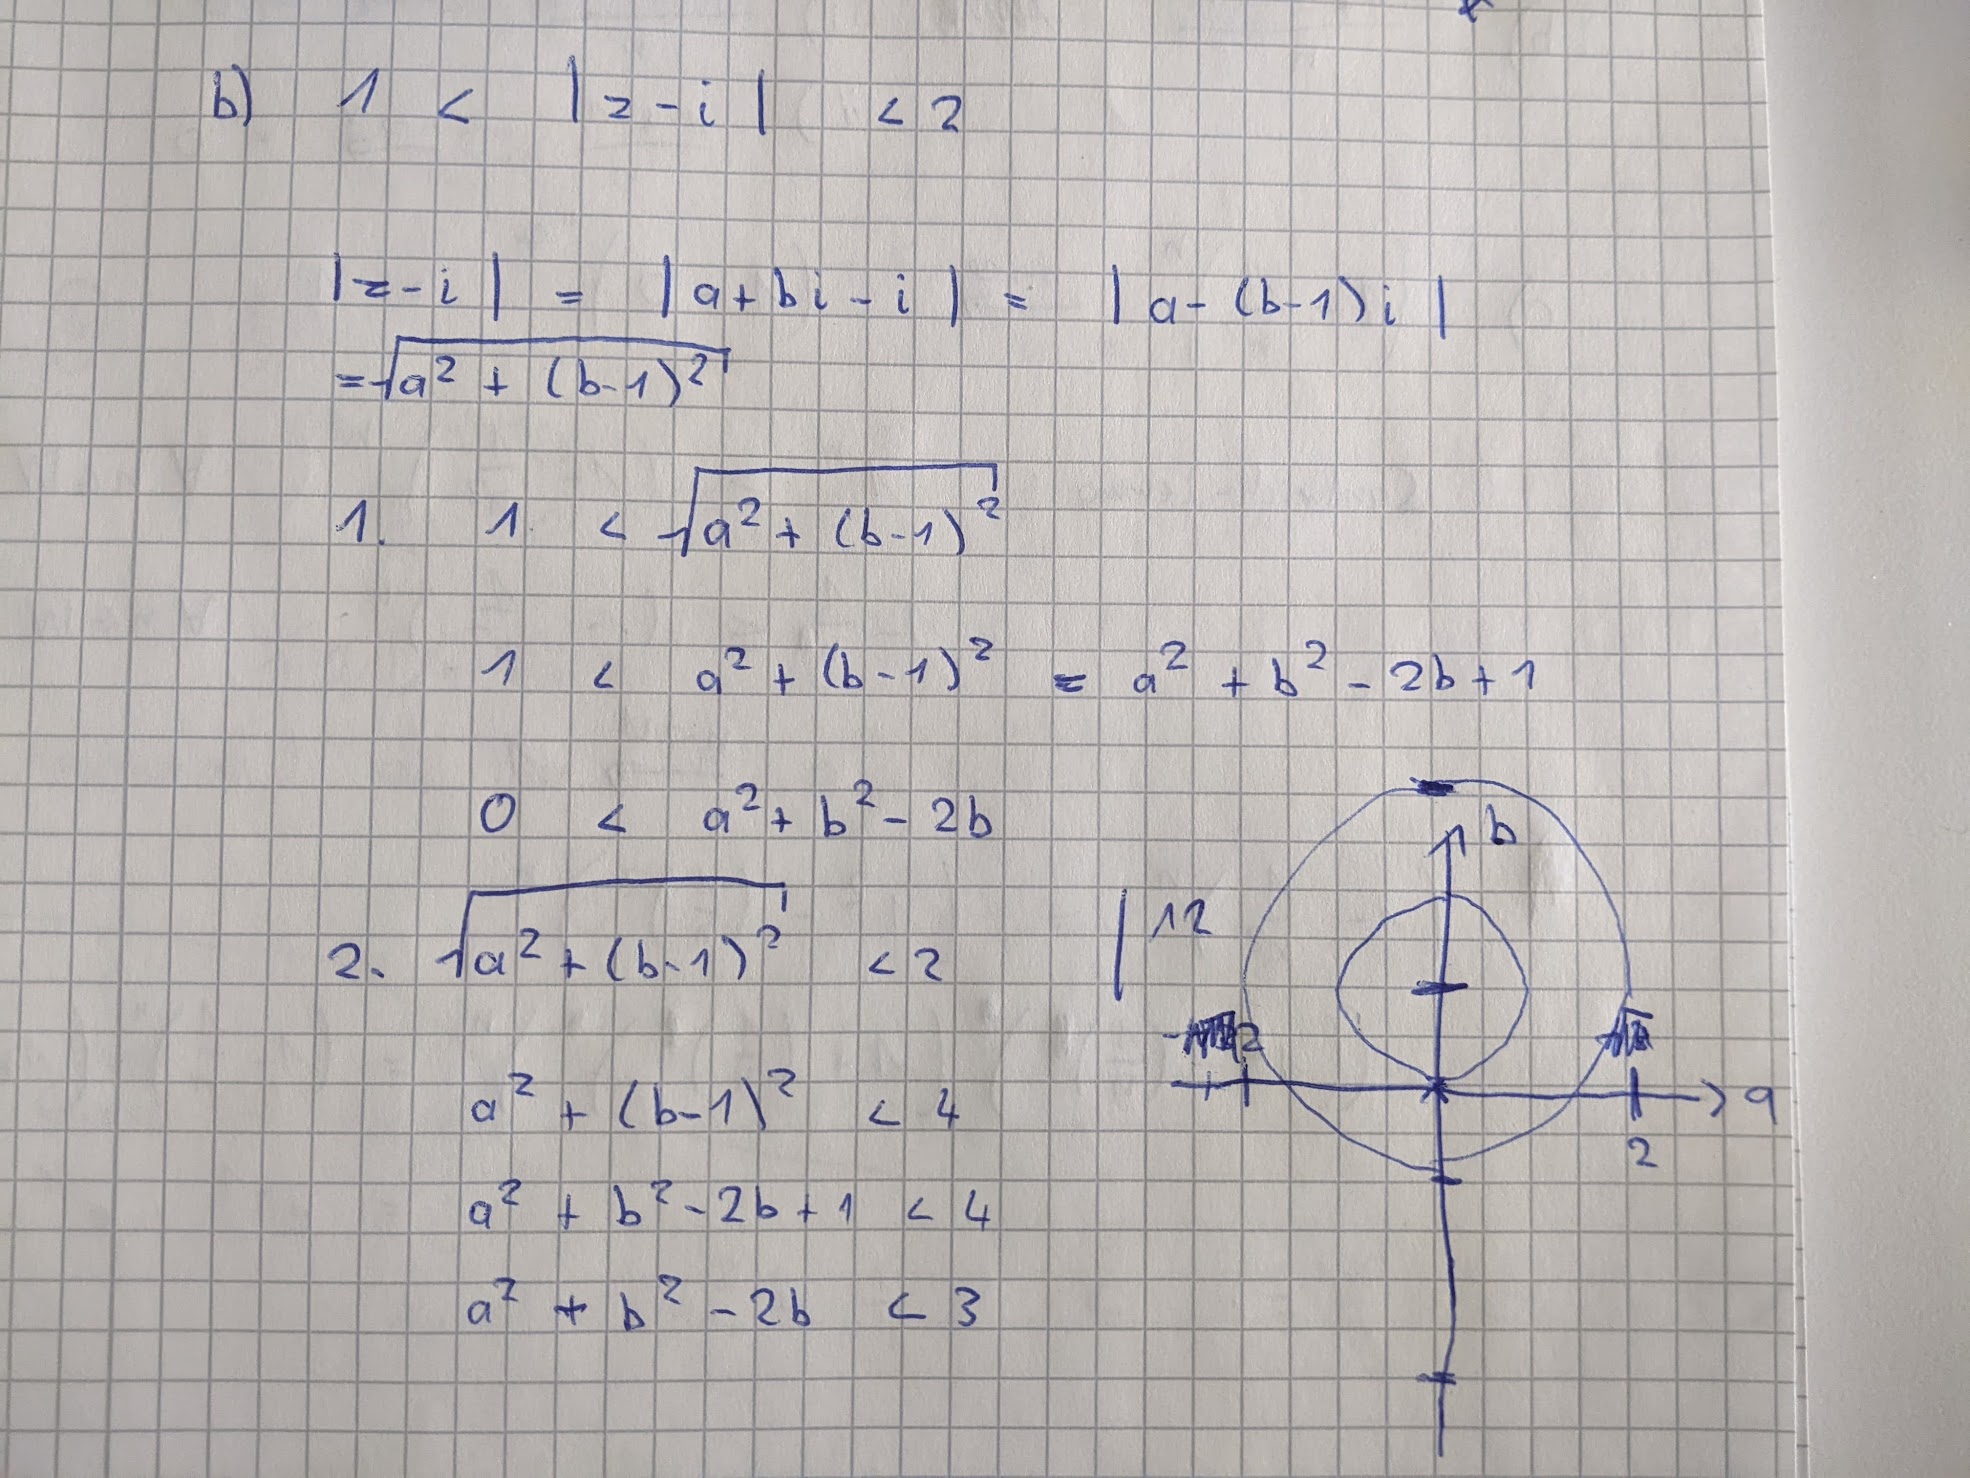 b) 1 < |z-i| < 2
|z-i| = |a+bi-i| = |a-(b-1)i|
=√(a² + (b-1)²)
1. 1 < √(a² + (b-1)²)
1 < a² + (b-1)² = a² + b² - 2b + 1
0 < a² + b² - 2b
b
2. √(a² + (b-1)²) < 2 | 12
2
a² + (b-1)² < 4
a
2
a² + b² - 2b + 1 < 4
a² + b² - 2b < 3